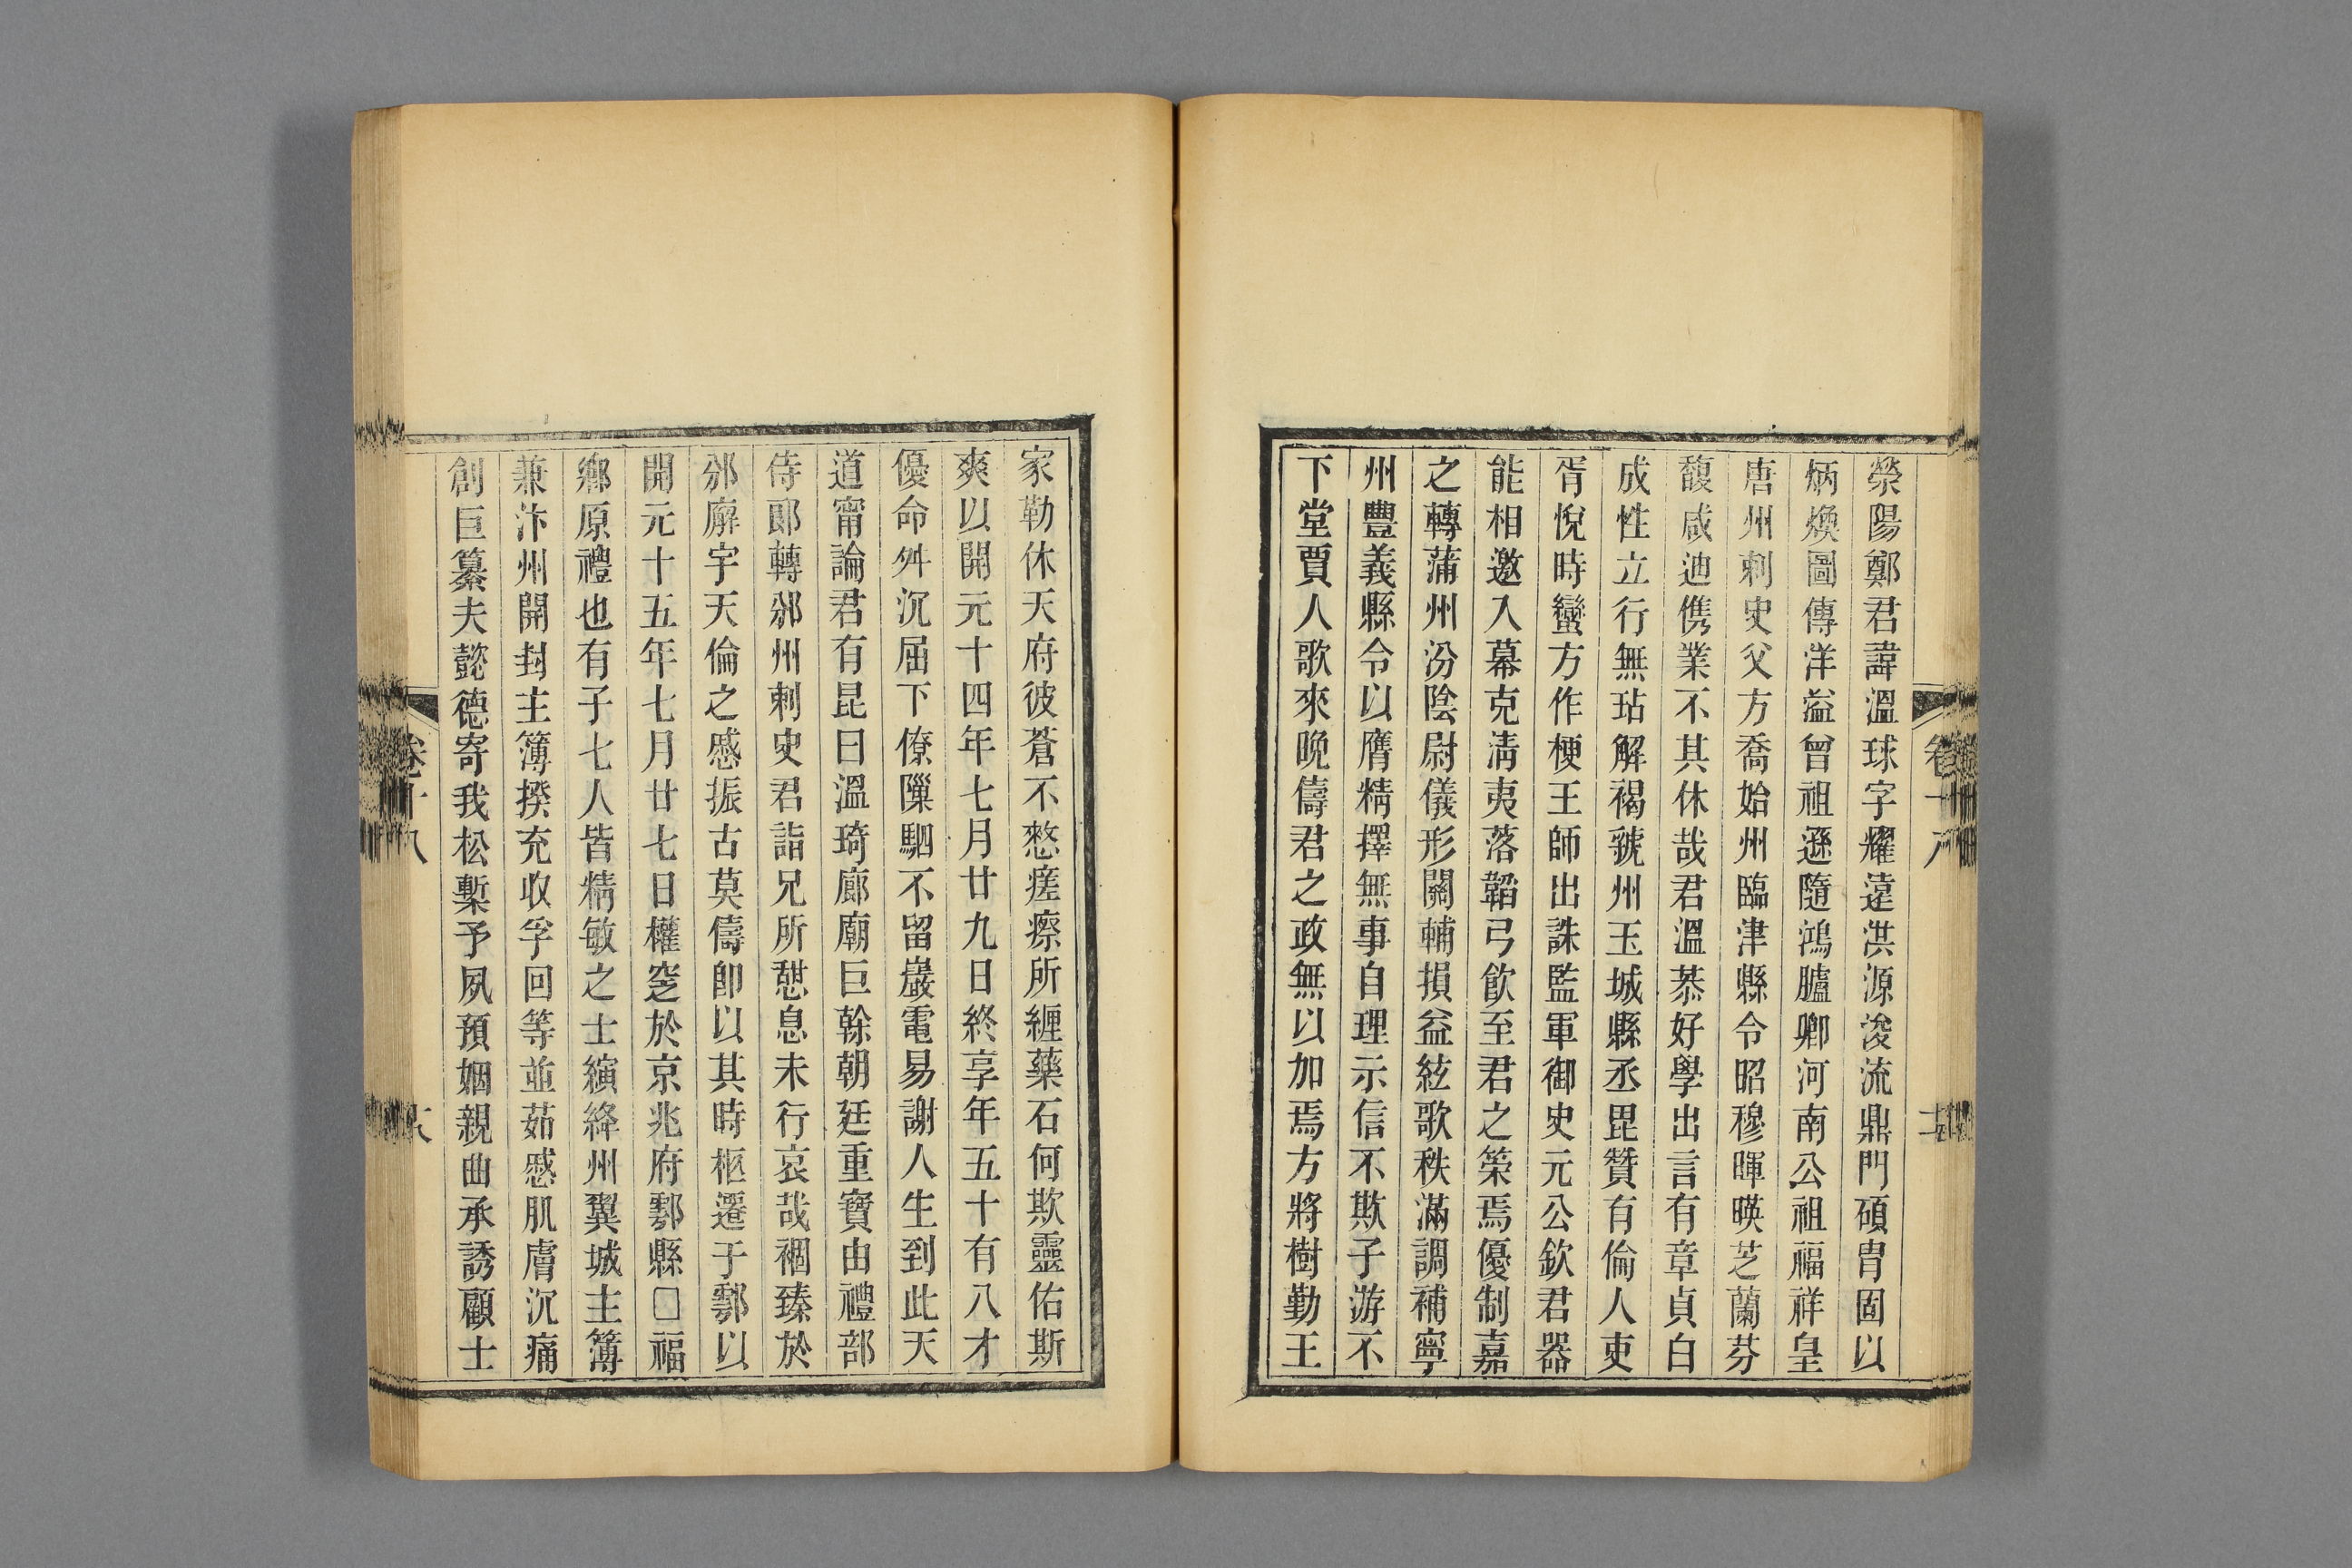 滎陽鄭君諱溫球字耀遠洪源浚流鼎門碩胄固以
炳煥圖傳洋溢曾祖遜隨鴻臚卿河南公祖福祥皇
唐州刺史父方喬始州臨津縣令昭穆暉暎芝蘭芬
馥咸迪儁業不其休哉君溫恭好學出言有章貞白
成性立行無玷解褐虢州玉城縣丞毘贊有倫人吏
胥悅時蠻方作梗王師出誅監軍御史元公欽君器
能相邀入幕克淸夷落韜弓飮至君之策焉優制嘉
之轉蒲州汾陰尉儀形關輔損益絃歌秩滿調補寧
州豐義縣令以膺精擇無事自理示信不欺子游不
下堂賈人歌來晚儔君之政無以加焉方將樹勤王
家勒休天府彼蒼不憖瘥瘵所纏藥石何欺靈佑斯
爽以開元十四年七月廿九日終享年五十有八才
優命舛沉屈下僚隟駟不留巖電易謝人生到此天
道甯論君有昆曰溫琦廊廟巨榦朝廷重寶由禮部
侍郎轉邠州刺史君詣兄所憇息未行哀哉裍臻於
邠廨宇天倫之慼振古莫儔卽以其時柩遷于鄠以
開元十五年七月廿七日權窆於京兆府鄠縣□福
鄉原禮也有子七人皆精敏之士縯絳州翼城主簿
兼汴州開封主簿揆充收孚回等並茹慼肌膚沉痛
創巨纂夫懿德寄我松塹予夙預姻親曲承誘顧士
卷十八